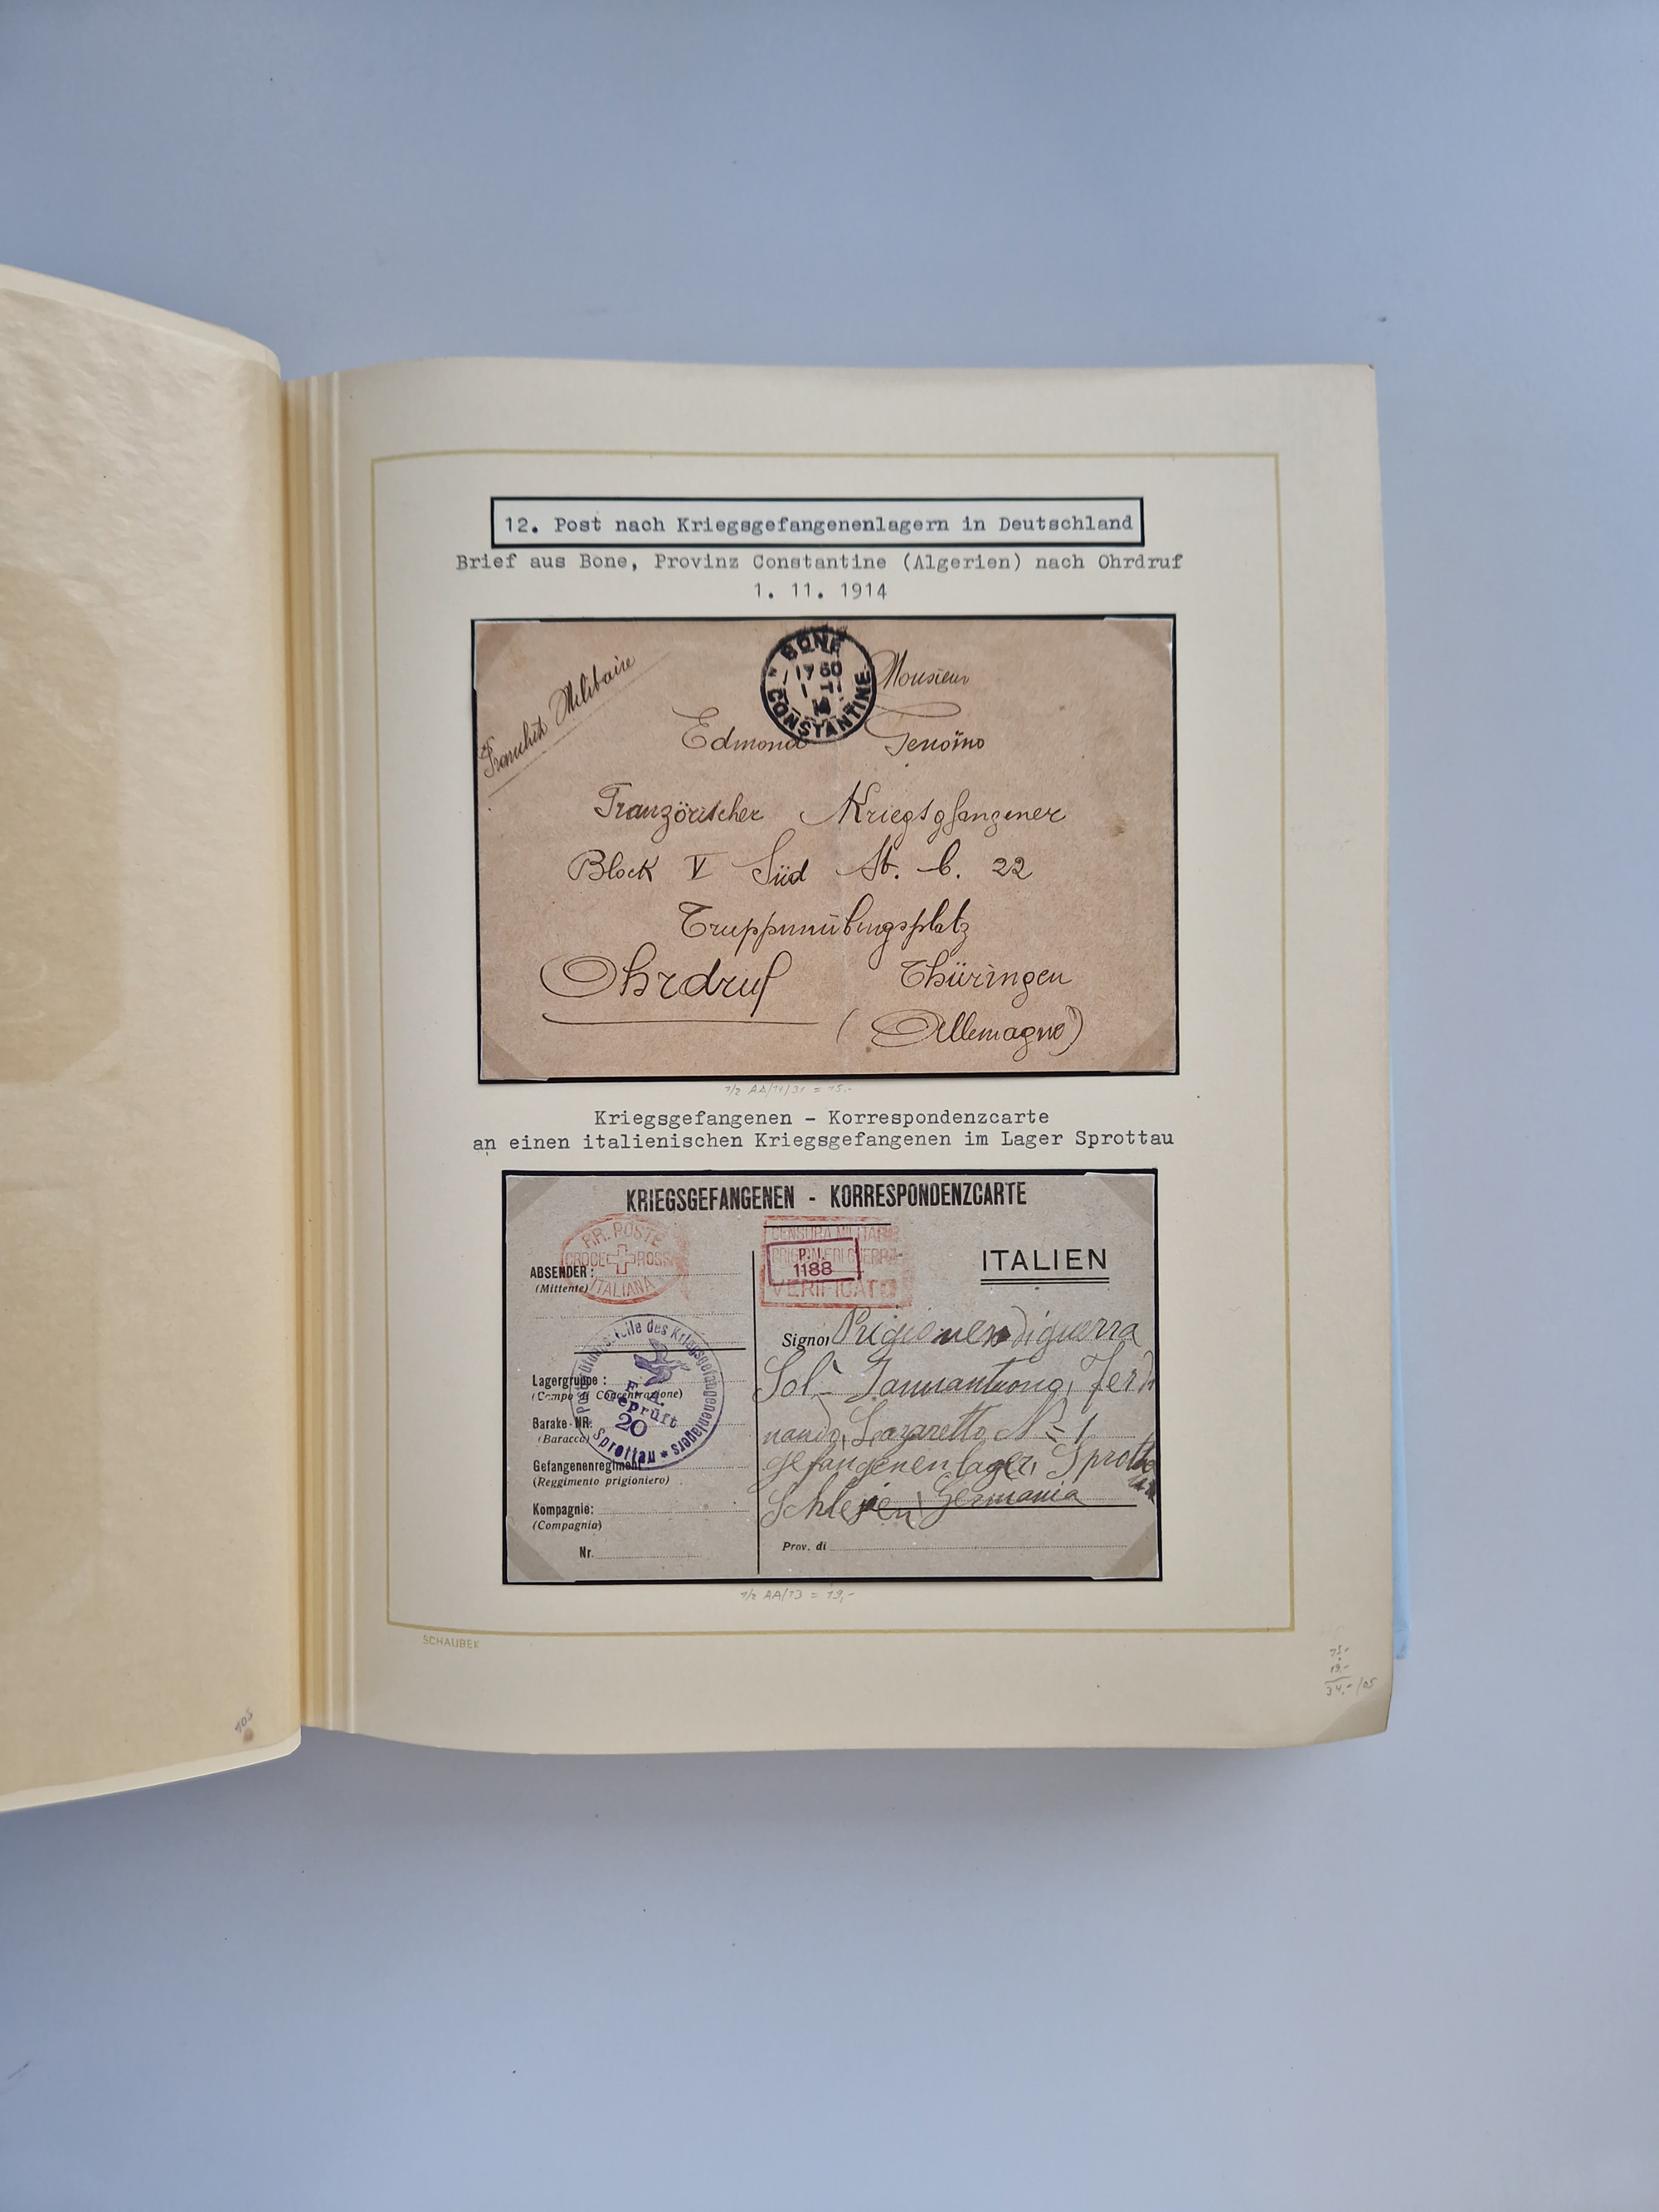 12. Post nach Kriegsgefangenenlagern in Deutschland
Brief aus Bone, Provinz Constantine (Algerien) nach Ohrdruf
1. 11. 1914
Franchise Militaire
BONE
17 50
1 11
14
CONSTANTINE
Monsieur
Edmond
Französischer Kriegsgfangener
Block V Süd St. b. 22
Truppenübungsplatz
Ohrdruf Thüringen
(Allemagne)
1/2 AA/14/31 = 15.-
Kriegsgefangenen - Korrespondenzcarte
an einen italienischen Kriegsgefangenen im Lager Sprottau
KRIEGSGEFANGENEN - KORRESPONDENZCARTE
RR. POSTE
CROCE ROSSA
ITALIANA
CENSURA MILITARE
PRIGIONIERI GUERRA
VERIFICATO
P.N.
1188
ITALIEN
ABSENDER:
(Mittente)
Signor Prigioniero di guerra
Sol.
nando, Lazaretto N° 1
gefangenenlager, Sprottau
Schlesien, Germania
Prov. di
Postprüfungsstelle des Kriegsgefangenenlagers
F. A.
Geprüft
20
Sprottau
Lagergruppe:
(Campo di Concentrazione)
Barake-NR.
(Baracca)
Gefangenenregiment
(Reggimento prigioniero)
Kompagnie:
(Compagnia)
Nr.
1/2 AA/13 = 19,-
SCHAUBEK
105
15.-
19.-
34.-/05